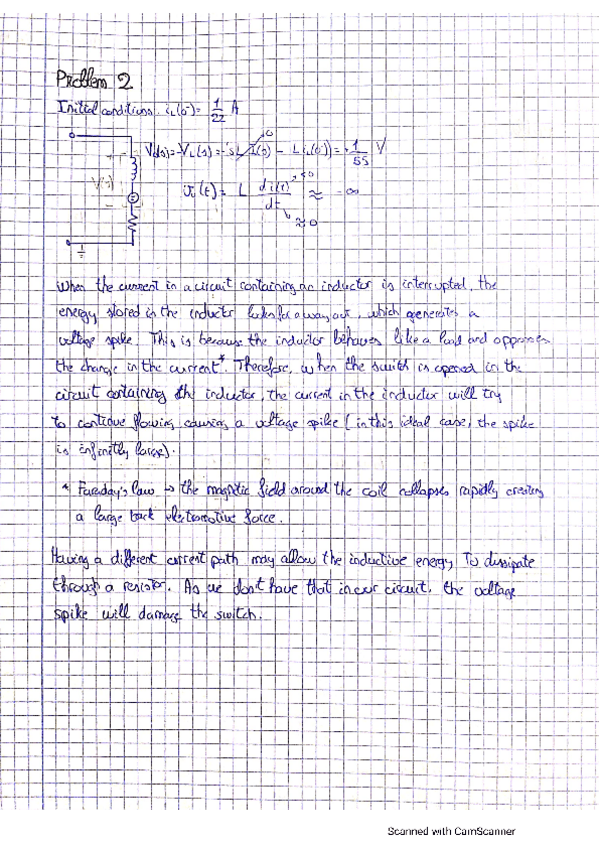 Problem 2
Initial conditions: iL(0) = 1/22 A
V(s) = -VL(s) = -(sL I(s) - L iL(0)) = 1/55 V
0
V(s)
vL(t) = L di(t)/dt ≈ -∞
<0
≈0
When the current in a circuit containing an inductor is interrupted, the
energy stored in the inductor looks for a way out, which generates a
voltage spike. This is because the inductor behaves like a load and opposes
the change in the current*. Therefore, when the switch is opened in the
circuit containing the inductor, the current in the inductor will try
to continue flowing, causing a voltage spike (in this ideal case, the spike
is infinitely large).
* Faraday's law → the magnetic field around the coil collapses rapidly creating
a large back electromotive force.
Having a different current path may allow the inductive energy to dissipate
through a resistor. As we don't have that in our circuit, the voltage
spike will damage the switch.
Scanned with CamScanner